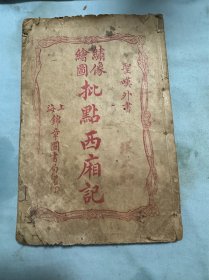 聖嘆外書
繡像
繪圖
批點西廂記
上海
錦章圖書局印